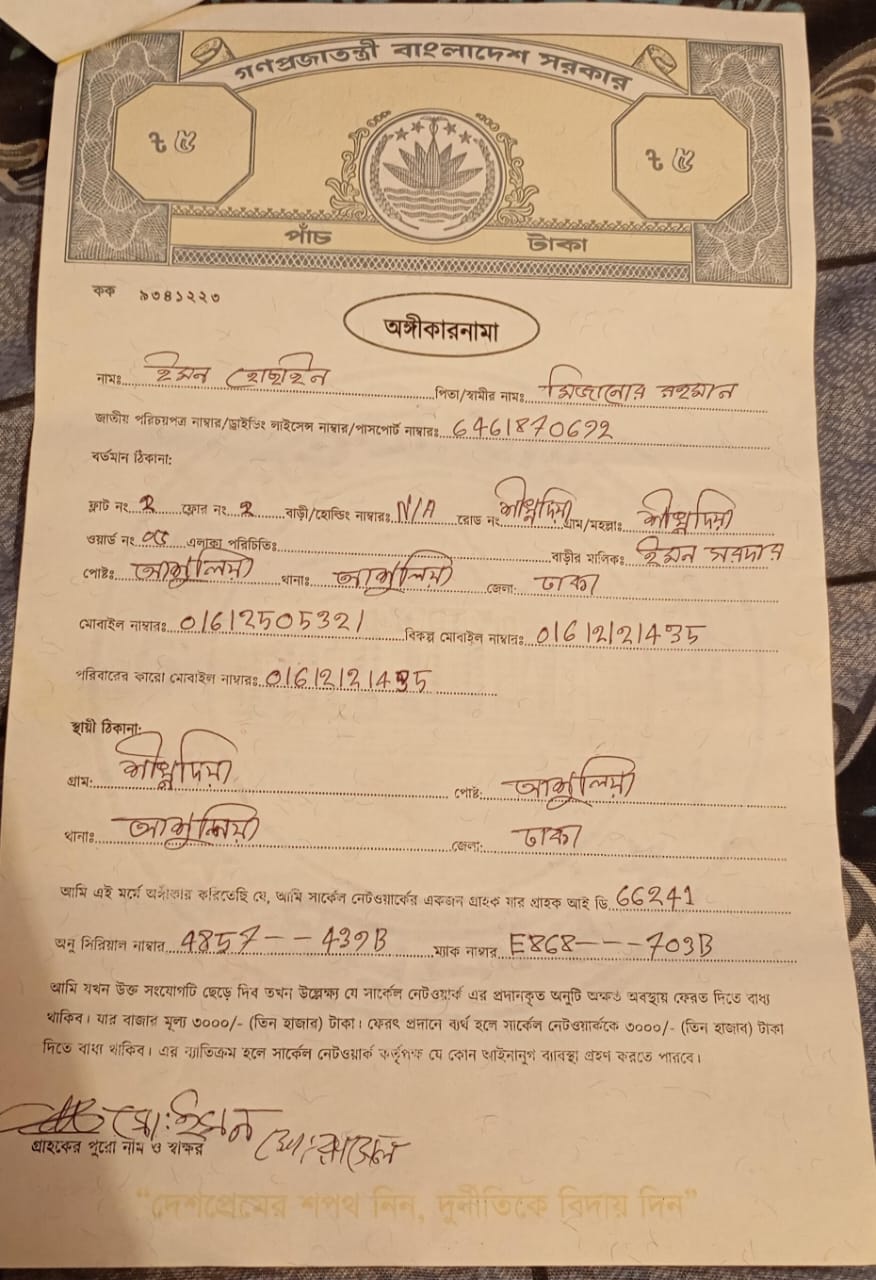 গণপ্রজাতন্ত্রী বাংলাদেশ সরকার
৳ ৫ ৳ ৫
পাঁচ টাকা
কক ৯৩৪১২২৩
অঙ্গীকারনামা
নামঃ ইমন হোছাইন পিতা/স্বামীর নামঃ মিজানোর রহমান
জাতীয় পরিচয়পত্র নাম্বার/ড্রাইভিং লাইসেন্স নাম্বার/পাসপোর্ট নাম্বারঃ
বর্তমান ঠিকানা:
ফ্লাট নং 2 ফ্লোর নং 2 বাড়ী/হোল্ডিং নাম্বারঃ N/A রোড নং গ্রাম/মহল্লাঃ
ওয়ার্ড নং এলাকা পরিচিতিঃ বাড়ীর মালিকঃ ইমন সরদার
পোষ্টঃ আশুলিয়া থানাঃ আশুলিয়া জেলা: ঢাকা
মোবাইল নাম্বারঃ 01612505321 বিকল্প মোবাইল নাম্বারঃ 01612121435
পরিবারের কারো মোবাইল নাম্বারঃ 01612121435
স্থায়ী ঠিকানা:
গ্রাম: পোষ্ট: আশুলিয়া
থানাঃ আশুলিয়া জেলা: ঢাকা
আমি এই মর্মে অঙ্গীকার করিতেছি যে, আমি সার্কেল নেটওয়ার্কের একজন গ্রাহক যার গ্রাহক আই ডি 66241
অনু সিরিয়াল নাম্বার 4857--439B ম্যাক নাম্বার E868---703B
আমি যখন উক্ত সংযোগটি ছেড়ে দিব তখন উল্লেক্ষ্য যে সার্কেল নেটওয়ার্ক এর প্রদানকৃত অনুটি অক্ষত অবস্থায় ফেরত দিতে বাধ্য
থাকিব। যার বাজার মূল্য ৩০০০/- (তিন হাজার) টাকা। ফেরৎ প্রদানে ব্যর্থ হলে সার্কেল নেটওয়ার্ককে ৩০০০/- (তিন হাজার) টাকা
দিতে বাধ্য থাকিব। এর ব্যতিক্রম হলে সার্কেল নেটওয়ার্ক কর্তৃপক্ষ যে কোন আইনানুগ ব্যবস্থা গ্রহণ করতে পারবে।
মো:ইমন মো:রাসেল
গ্রাহকের পুরো নাম ও স্বাক্ষর
“দেশপ্রেমের শপথ নিন, দুর্নীতিকে বিদায় দিন”